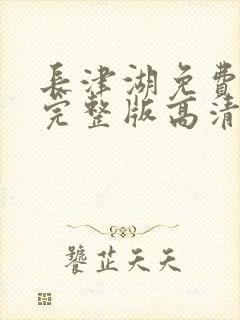 長津湖免費
完整版高清
饕芷天天